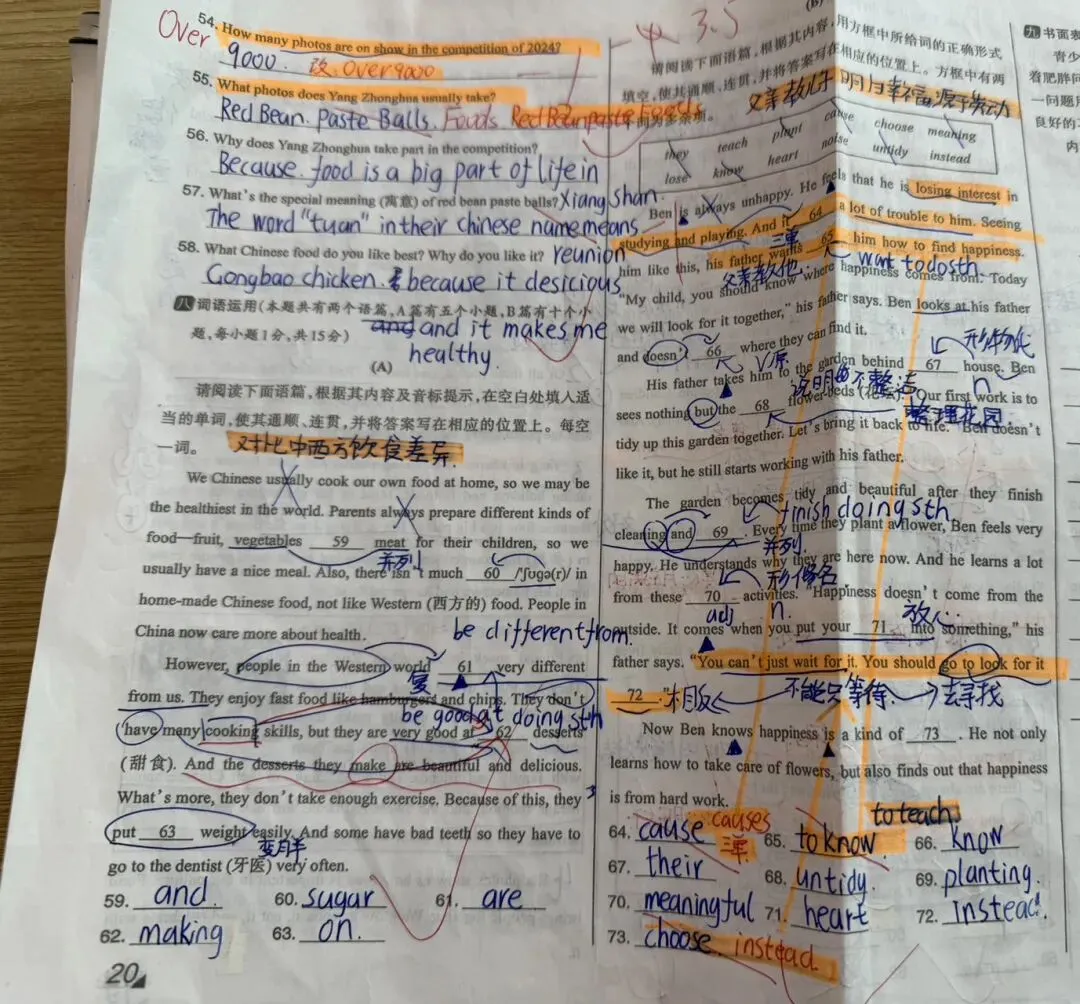 Over
54. How many photos are on show in the competition of 2024?
9000. 改. Over 9000
55. What photos does Yang Zhonghua usually take?
Red Bean. Paste Balls. Foods Red Bean paste Foods
56. Why does Yang Zhonghua take part in the competition?
Because. food is a big part of life in
Xiang Shan.
57. What's the special meaning (寓意) of red bean paste balls?
The word "tuan" in their chinese name means
reunion
58. What Chinese food do you like best? Why do you like it?
Gongbao chicken. because it desicious
and and it makes me
healthy.
八 词语运用(本题共有两个语篇,A篇有五个小题,B篇有十个小
题,每小题1分,共15分)
(A)
请阅读下面语篇,根据其内容及音标提示,在空白处填入适
当的单词,使其通顺、连贯,并将答案写在相应的位置上。每空
一词。
对比中西方饮食差异.
We Chinese usually cook our own food at home, so we may be
the healthiest in the world. Parents always prepare different kinds of
food—fruit, vegetables 59 meat for their children, so we
并列
usually have a nice meal. Also, there isn't much 60 /'ʃʊgə(r)/ in
home-made Chinese food, not like Western (西方的) food. People in
China now care more about health.
be different from
However, people in the Western world 61 very different
from us. They enjoy fast food like hamburgers and chips. They don't
be good at doing sth
have many cooking skills, but they are very good at 62 desserts
(甜食). And the desserts they make are beautiful and delicious.
What's more, they don't take enough exercise. Because of this, they
put 63 weight easily. And some have bad teeth so they have to
变胖
go to the dentist (牙医) very often.
59. and.
60. sugar
61. are
62. making
63. on.
20
-4 3.5
(B)
请阅读下面语篇,根据其内容,用方框中所给词的正确形式
填空,使其通顺、连贯,并将答案写在相应的位置上。方框中有两
父亲教儿子明白幸福源于劳动
they teach plant cause choose meaning
lose know heart noise untidy instead
Ben is always unhappy. He feels that he is losing interest in
studying and playing. And it 64 a lot of trouble to him. Seeing
三单
him like this, his father wants 65 him how to find happiness.
父亲教他. want to do sth.
"My child, you should know where happiness comes from. Today
we will look for it together," his father says. Ben looks at his father
and doesn't 66 where they can find it.
V原
形物代
His father takes him to the garden behind 67 house. Ben
n
说明曲不整洁
sees nothing but the 68 flower beds (花坛). "Our first work is to
整理花园
tidy up this garden together. Let's bring it back to life." Ben doesn't
like it, but he still starts working with his father.
The garden becomes tidy and beautiful after they finish
finish doing sth
cleaning and 69 . Every time they plant a flower, Ben feels very
并列.
happy. He understands why they are here now. And he learns a lot
形修名
from these 70 activities. "Happiness doesn't come from the
adj n.
放心
outside. It comes when you put your 71 into something," his
father says. "You can't just wait for it. You should go to look for it
72 ."
相反 不能只等待. 去寻找
Now Ben knows happiness is a kind of 73 . He not only
learns how to take care of flowers, but also finds out that happiness
is from hard work.
to teach
64. cause causes
三单.
65. to know.
66. know
67. their
68. untidy.
69. planting.
70. meaningful
71. heart
72. Instead.
73. choose. instead.
九 书面表
青少
着肥胖问
一问题
良好的
内